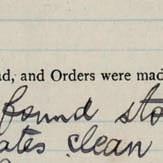 ad, and Orders were mad
found sto
ates clean